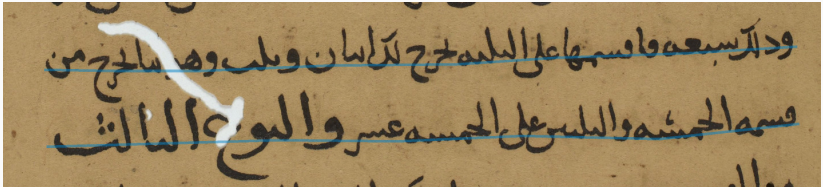 وذلك سبعه فاقسمها على الثلثه يخرج لك اثنان وثلث يخرج من
قسمه الخمسه والثلثين على الخمسه عشر والنوع الثالث